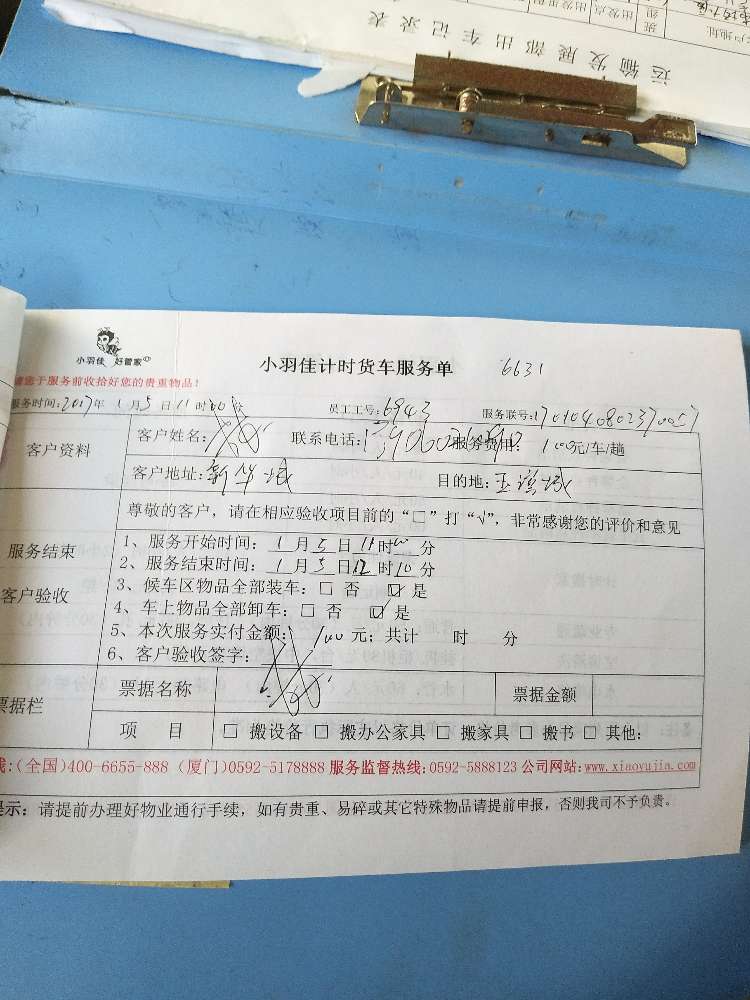 运输发展部出车记录表
小羽佳 好管家
小羽佳计时货车服务单 6631
请您于服务前收拾好您的贵重物品！
服务时间:2017年 1月5日11时00分 员工工号:6943 服务联号:1701040802370057
客户资料
客户姓名: 联系电话: 服务费用: 100元/车/趟
客户地址: 目的地:
尊敬的客户，请在相应验收项目前的“□”打“√”，非常感谢您的评价和意见
服务结束
客户验收
1、服务开始时间: 1月5日11时00分
2、服务结束时间: 1月5日12时10分
3、候车区物品全部装车: □ 否 ☑ 是
4、车上物品全部卸车: □ 否 ☑ 是
5、本次服务实付金额: 100 元; 共计 时 分
6、客户验收签字:
票据栏
票据名称 票据金额
项 目 □ 搬设备 □ 搬办公家具 □ 搬家具 □ 搬书 □ 其他:
线:(全国)400-6655-888 (厦门)0592-5178888 服务监督热线:0592-5888123 公司网站:www.xiaoyujia.com
提示: 请提前办理好物业通行手续，如有贵重、易碎或其它特殊物品请提前申报，否则我司不予负责。